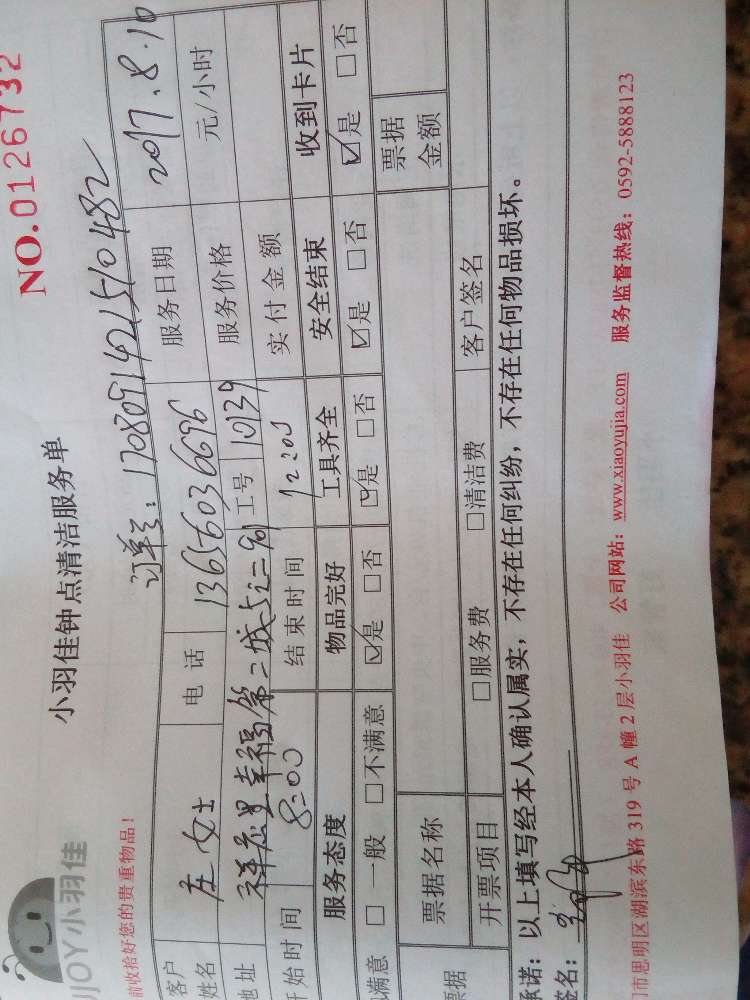 NO.0126732
小羽佳
小羽佳钟点清洁服务单
前收拾好您的贵重物品!
订单号:1708091421510482
客户姓名 庄女士 电话 13656036696 服务日期 2017.8.10
地址 祥店里幸福第二城 工号 10139 服务价格 元/小时
开始时间 8:00 结束时间 12:00 实付金额
服务态度 物品完好 工具齐全 安全结束 收到卡片
满意 □一般 □不满意 ☑是 □否 ☑是 □否 ☑是 □否 ☑是 □否
票据 票据名称 票据金额
开票项目 □服务费 □清洁费 客户签名
承诺:以上填写经本人确认属实,不存在任何纠纷,不存在任何物品损坏。
签名:
门市思明区湖滨东路319号A幢2层小羽佳 公司网站:www.xiaoyujia.com 服务监督热线:0592-5888123